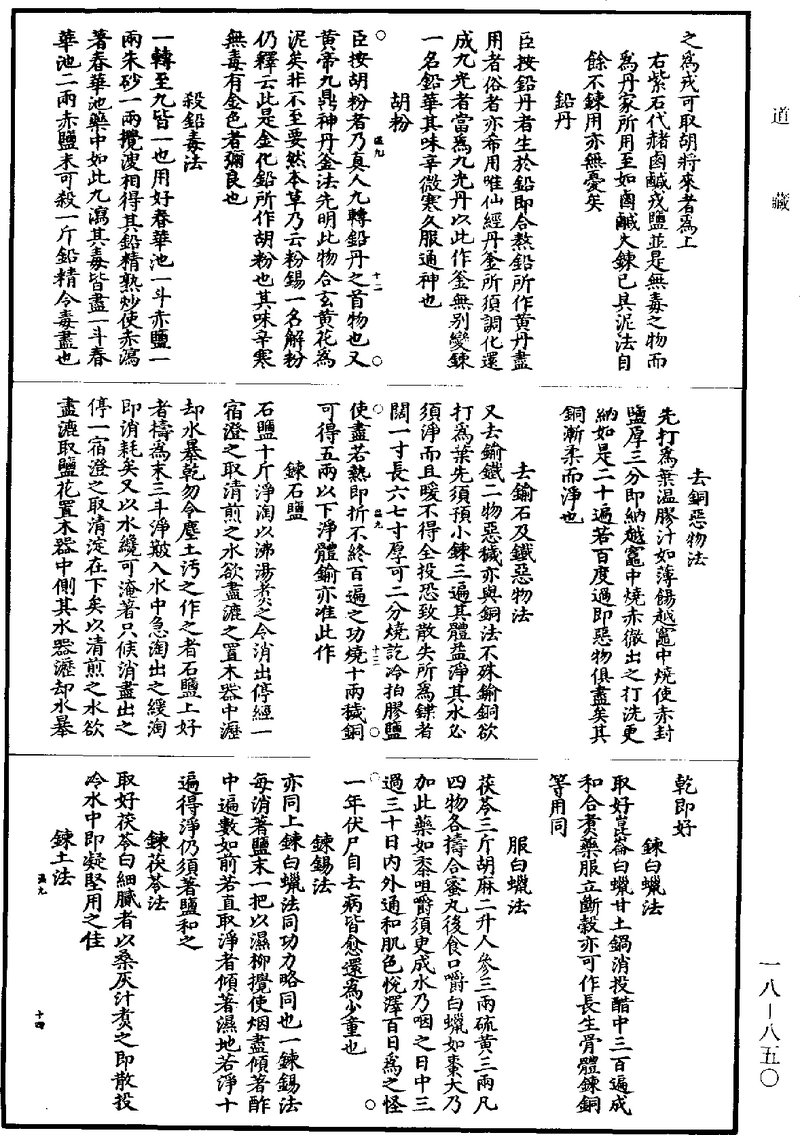 道藏
之為戎可取胡將來者為上
右紫石代赭鹵鹹戎鹽並是無毒之物而
為丹家所用至如鹵鹹大鍊已具泥法自
餘不鍊用亦無憂矣
鉛丹
臣按鉛丹者生於鉛即合熬鉛所作黃丹盡
用者俗者亦希用唯仙經丹釜所須調化還
成九光者當為九光丹以此作釜無別變鍊
一名鉛華其味辛微寒久服通神也
胡粉
臣按胡粉者乃真人九轉鉛丹之首物也又
黃帝九鼎神丹釜法先明此物合玄黃花為
泥矣非不至要然本草乃云粉錫一名解粉
仍釋云此是金化鉛所作胡粉也其味辛寒
無毒有金色者彌良也
殺鉛毒法
一轉至九皆一也用好春華池一斗赤鹽一
兩朱砂一兩攪溲相得其鉛精熟炒使赤瀉
著春華池藥中如此九瀉其毒皆盡一斗春
華池二兩赤鹽末可殺一斤鉛精令毒盡也
去銅惡物法
先打為葉温膠汁如薄餳越竈中燒使赤封
鹽厚三分即納越竈中燒赤徹出之打洗更
納如是二十遍若百度過即惡物俱盡矣其
銅漸柔而淨也
去鍮石及鐵惡物法
又去鍮鐵二物惡穢亦與銅法不殊鍮銅欲
打為葉先須預小鍊三遍其體益淨其水必
須淨而且暖不得全投恐致散失所為鍱者
闊一寸長六七寸厚可二分燒訖冷拍膠鹽
使盡若熱即折不終百遍之功燒十兩穢銅
可得五兩以下淨體鍮亦准此作
鍊石鹽
石鹽十斤淨淘以沸湯煑之令消出停經一
宿澄之取清煎之水欲盡漉之置木器中瀝
却水暴乾勿令塵土汚之作之者石鹽上好
者擣為末三斗淨簸入水中急淘出之緩淘
即消耗矣又以水纔可淹著只候消盡出之
停一宿澄之取清淀在下矣以清煎之水欲
盡漉取鹽花置木器中側其水器瀝却水暴
乾即好
鍊白蠟法
取好崑崙白蠟甘土鍋消投酷中三百遍成
和合煑藥服立斷穀亦可作長生骨體鍊銅
等用同
服白蠟法
茯苓三斤胡麻二升人參三兩硫黃三兩凡
四物各擣合蜜丸後食口嚼白蠟如棗大乃
加此藥如黍咀嚼須臾成水乃咽之日中三
過三十日內外通和肌色悅澤百日為之怪
一年伏尸自去病皆愈還為少童也
鍊錫法
亦同上鍊白蠟法同功力略同也一鍊錫法
每消著鹽末一把以濕柳攪使烟盡傾著酢
中遍數如前若直取淨者傾著濕地若淨十
遍得淨仍須著鹽和之
鍊茯苓法
取好茯苓白細膩者以桑灰汁煑之即散投
冷水中即凝堅用之佳
鍊土法
十二
十三
十四
一八－八五〇